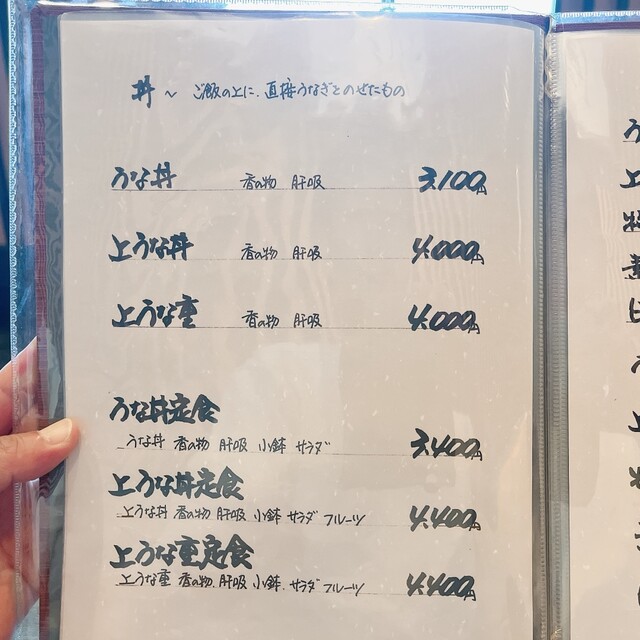 丼 ～ ご飯の上に、直接うなぎとのせたもの
うな丼 香の物 肝吸 3,100円
上うな丼 香の物 肝吸 4,000円
上うな重 香の物 肝吸 4,000円
うな丼定食
うな丼 香の物 肝吸 小鉢 サラダ 3,400円
上うな丼定食
上うな丼 香の物 肝吸 小鉢 サラダ フルーツ 4,400円
上うな重定食
上うな重 香の物. 肝吸 小鉢. サラダ フルーツ 4,400円
う
上
う
上